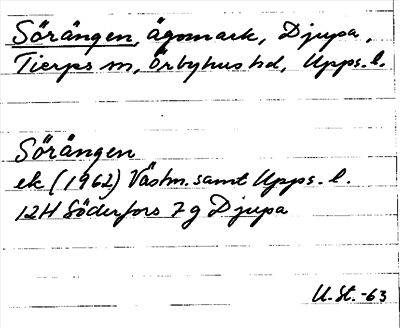 Sörängen, ägomark, Djupa,
Tierps sn, Örbyhus hd, Upps. l.
Sörängen
ek (1962) Västm. samt Upps. l.
12H Söderfors 7g Djupa
U.St.-63